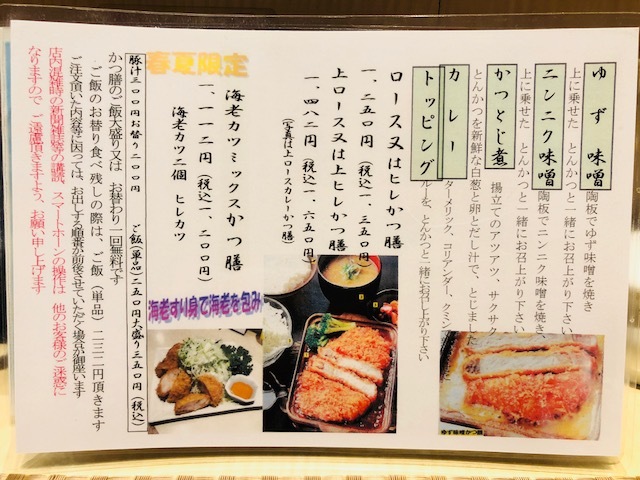 ゆず味噌
陶板でゆず味噌を焼き
上に乗せた とんかつと一緒にお召上がり下さい
ニンニク味噌
陶板でニンニク味噌を焼き、
上に乗せた とんかつと一緒にお召上がり下さい
かつとじ煮
揚立てのアツアツ、サクサク
とんかつを新鮮な白葱と卵とだし汁で、とじました
カレー
ターメリック、コリアンダー、クミン
トッピング
ルーを、とんかつと一緒にお召上がり下さい
ロース又はヒレかつ膳
一、二五〇円(税込一、三五〇円)
上ロース又は上ヒレかつ膳
一、四八二円(税込一、六五〇円)
(写真は上ロースカレーかつ膳)
ゆず味噌かつ膳
春夏限定
海老カツミックスかつ膳
一、一一二円(税込一、二〇〇円)
海老カツ二個 ヒレカツ
海老すり身で海老を包み
豚汁三〇〇円お替り二〇〇円 ご飯(単品)二五〇円大盛り三五〇円(税込)
かつ膳のご飯大盛り又は お替わり一回無料です
ご飯のお替り食べ残しの際は、ご飯(単品)二三一円頂きます
ご注文頂いた内容等に因っては、お出しする順番が前後させていただく場合が御座います
店内混雑時の新聞雑誌等の購読、スマートホーンの操作は 他のお客様のご迷惑に
なりますので ご遠慮頂きますよう、お願い申し上げます